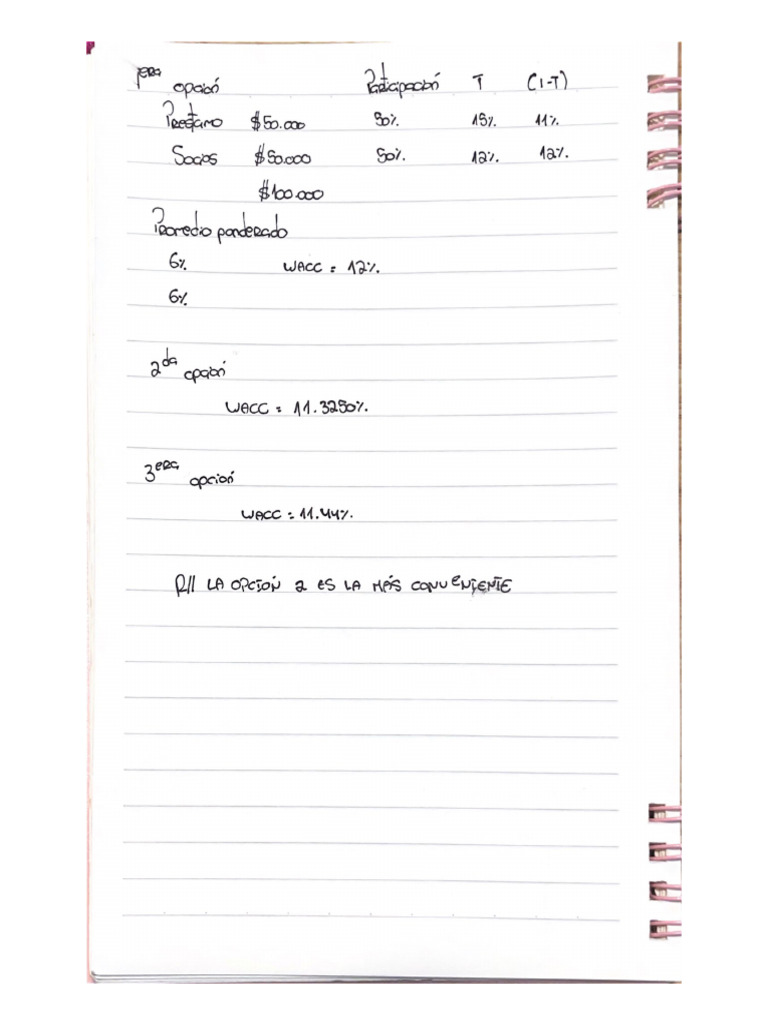 1era opción Participación T (1-T)
Prestamo $50.000 50% 15% 11%
Socios $50.000 50% 12% 12%
$100.000
Promedio ponderado
6% WACC = 12%.
6%
2da opción
WACC = 11.3250%.
3era opción
WACC = 11.44%.
R// LA OPCIÓN 2 ES LA MÁS CONVENIENTE